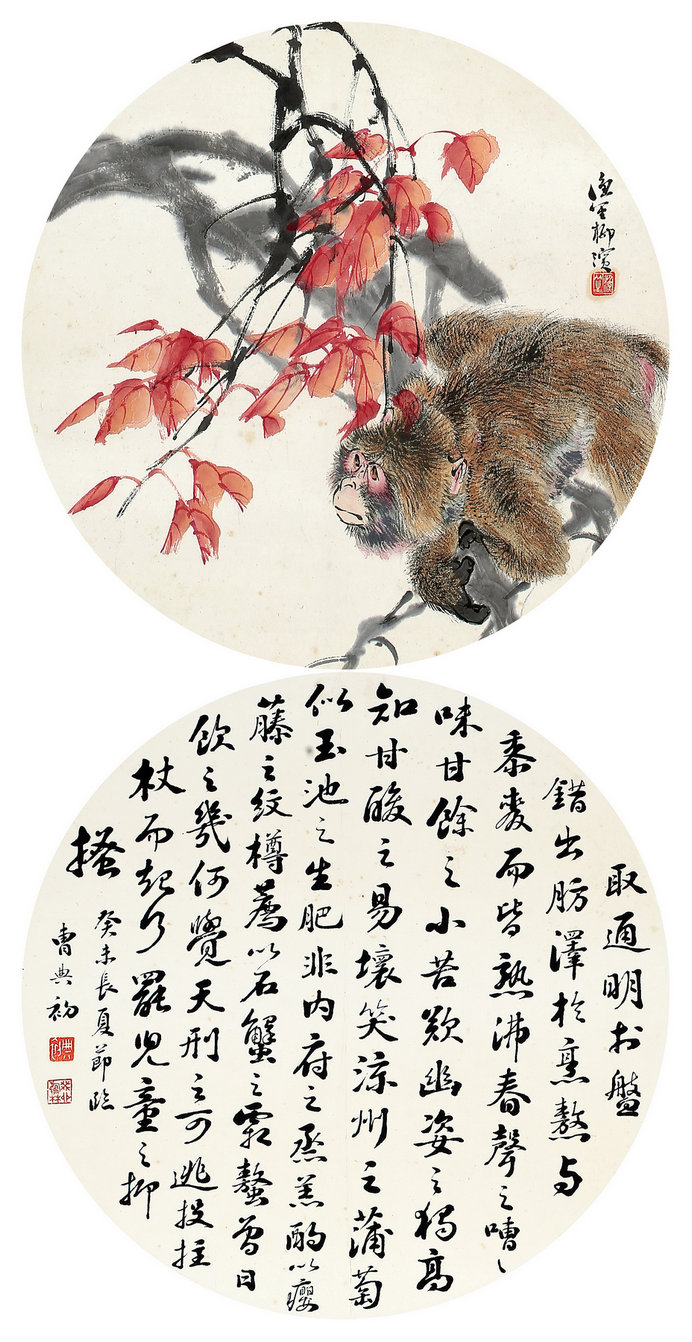 漁笙柳濱
取通明於盤
錯出肪澤於烹熬与
黍麥而皆熟沸舂聲之嘈々
味甘餘之小苦歎幽姿之獨高
知甘酸之易壞笑涼州之蒲萄
似玉池之生肥非内府之烝羔酌以癭
藤之紋樽薦以石蟹之霜螯曾日
飲之幾何覺天刑之可逃投拄
杖而起行罷兒童之抑
搔
癸未長夏節臨
曹典初